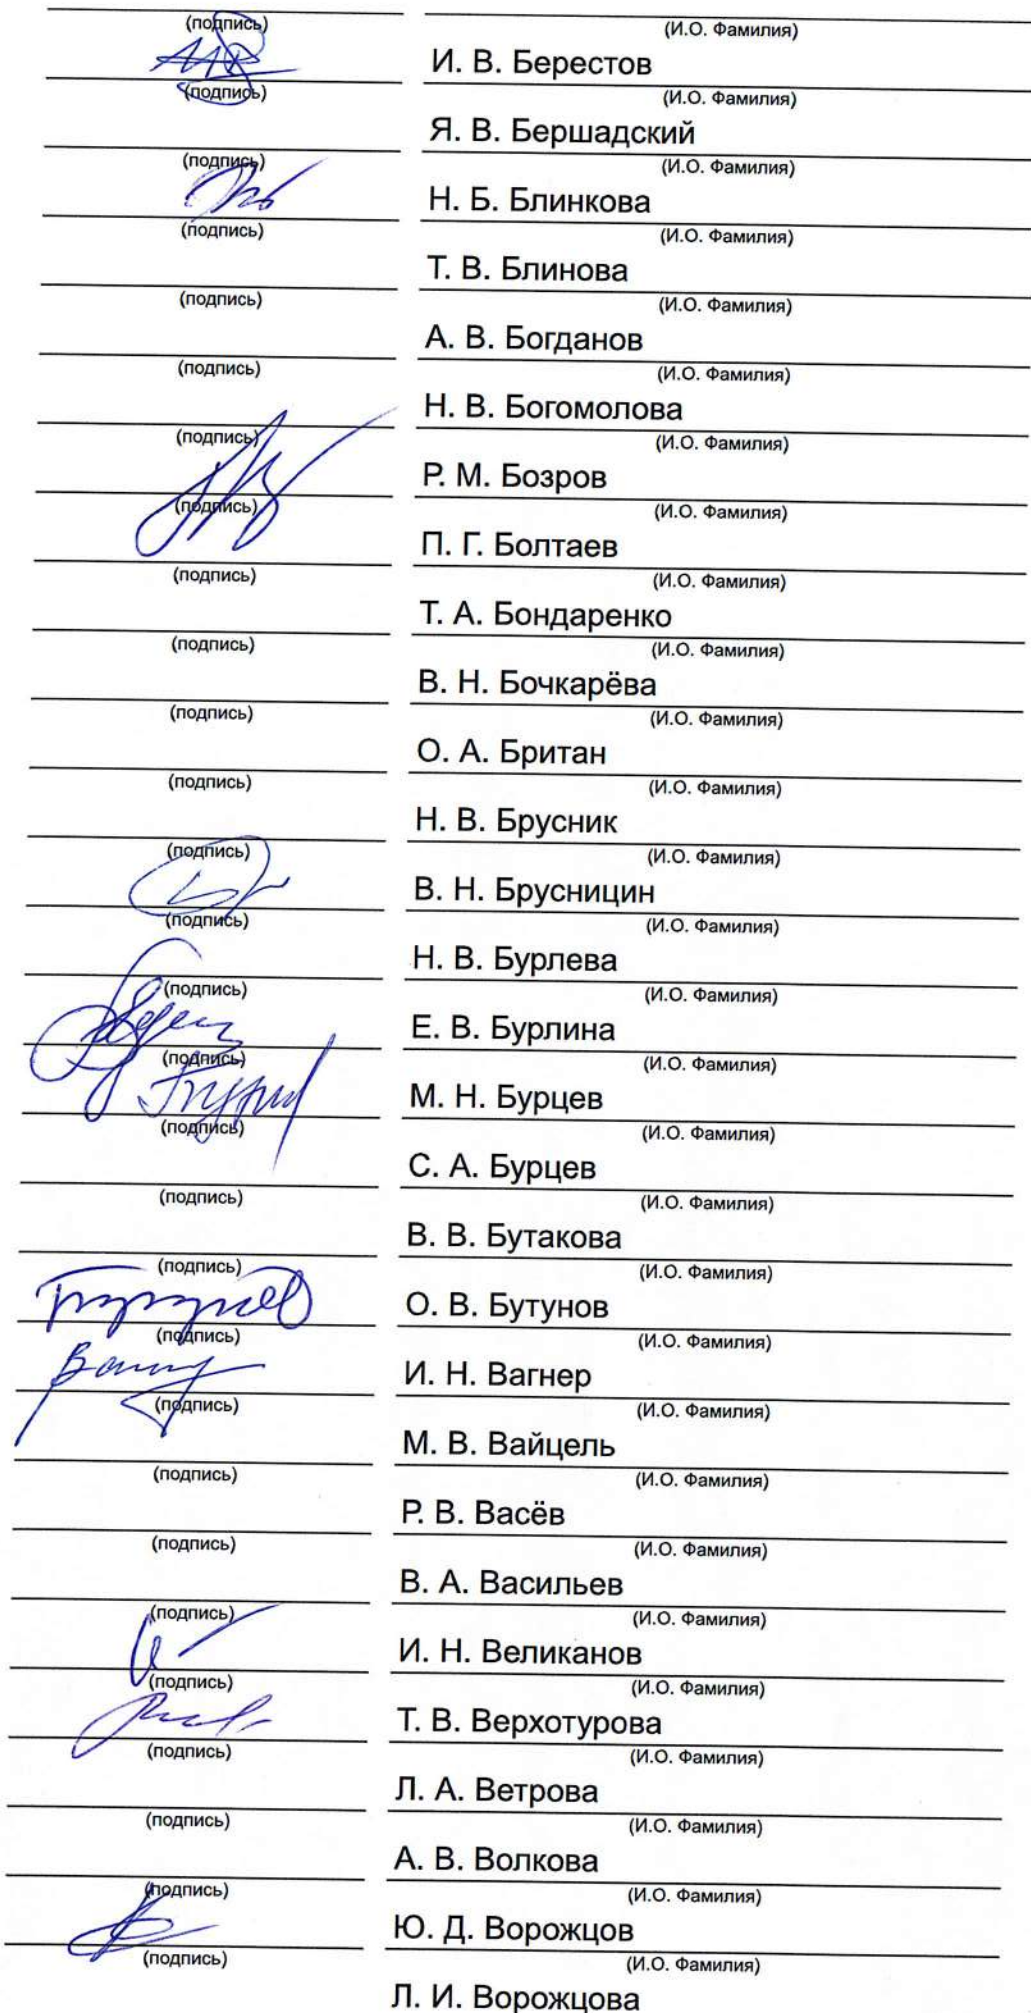 (подпись) (И.О. Фамилия)
И. В. Берестов
(подпись) (И.О. Фамилия)
Я. В. Бершадский
(подпись) (И.О. Фамилия)
Н. Б. Блинкова
(подпись) (И.О. Фамилия)
Т. В. Блинова
(подпись) (И.О. Фамилия)
А. В. Богданов
(подпись) (И.О. Фамилия)
Н. В. Богомолова
(подпись) (И.О. Фамилия)
Р. М. Бозров
(подпись) (И.О. Фамилия)
П. Г. Болтаев
(подпись) (И.О. Фамилия)
Т. А. Бондаренко
(подпись) (И.О. Фамилия)
В. Н. Бочкарёва
(подпись) (И.О. Фамилия)
О. А. Британ
(подпись) (И.О. Фамилия)
Н. В. Брусник
(подпись) (И.О. Фамилия)
В. Н. Брусницин
(подпись) (И.О. Фамилия)
Н. В. Бурлева
(подпись) (И.О. Фамилия)
Е. В. Бурлина
(подпись) (И.О. Фамилия)
М. Н. Бурцев
(подпись) (И.О. Фамилия)
С. А. Бурцев
(подпись) (И.О. Фамилия)
В. В. Бутакова
(подпись) (И.О. Фамилия)
О. В. Бутунов
(подпись) (И.О. Фамилия)
И. Н. Вагнер
(подпись) (И.О. Фамилия)
М. В. Вайцель
(подпись) (И.О. Фамилия)
Р. В. Васёв
(подпись) (И.О. Фамилия)
В. А. Васильев
(подпись) (И.О. Фамилия)
И. Н. Великанов
(подпись) (И.О. Фамилия)
Т. В. Верхотурова
(подпись) (И.О. Фамилия)
Л. А. Ветрова
(подпись) (И.О. Фамилия)
А. В. Волкова
(подпись) (И.О. Фамилия)
Ю. Д. Ворожцов
(подпись) (И.О. Фамилия)
Л. И. Ворожцова